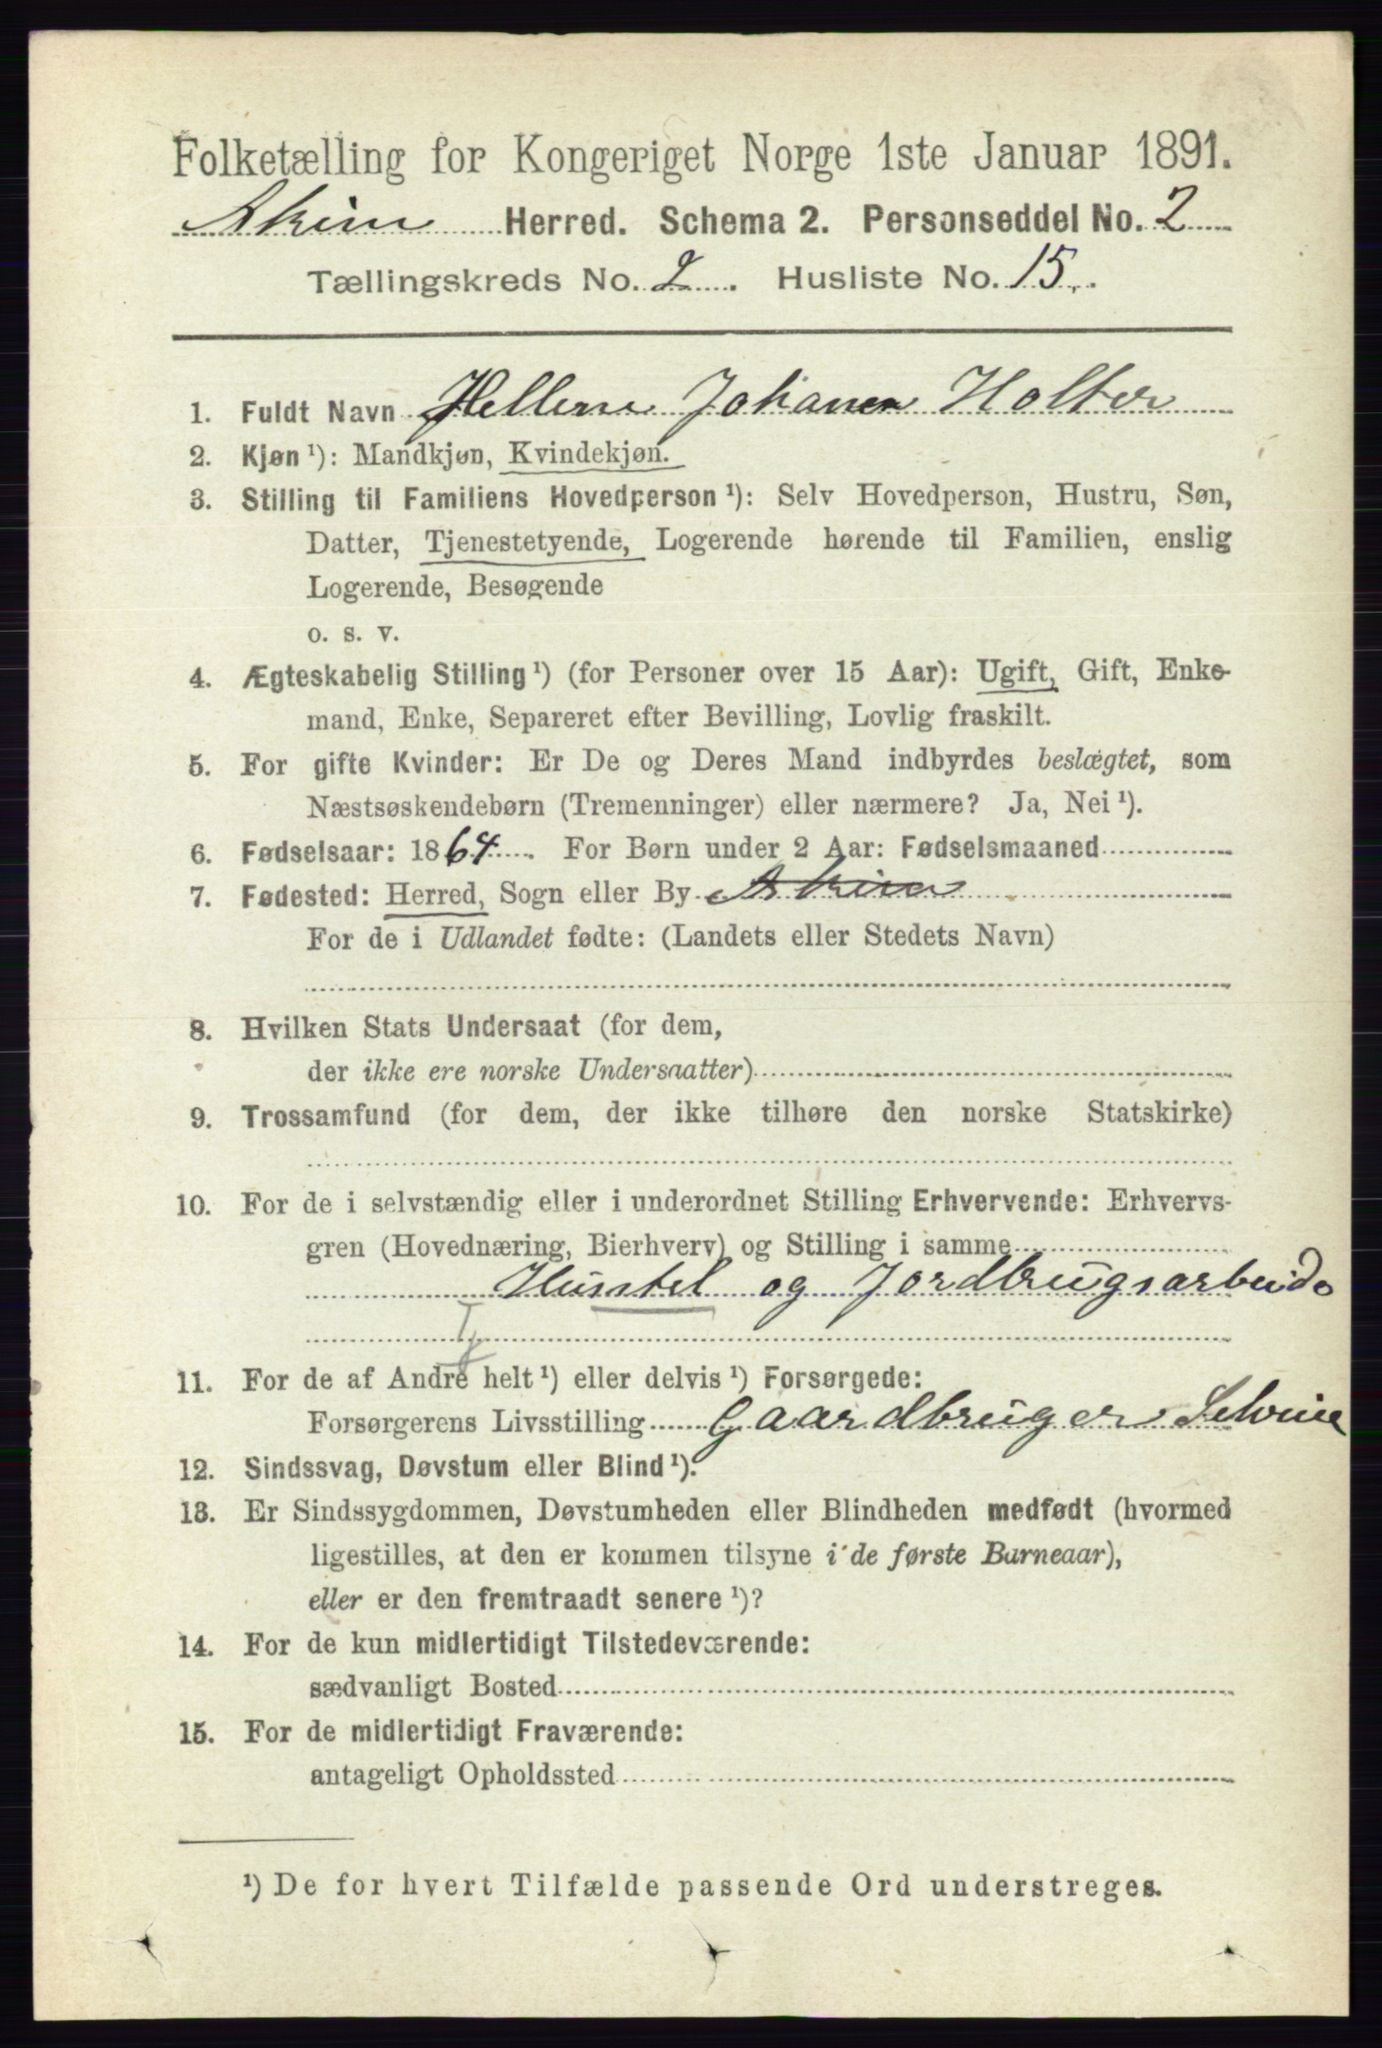 Folketælling for Kongeriget Norge 1ste Januar 1891.
Askim Herred. Schema 2. Personseddel No. 2
Tællingskreds No. 2. Husliste No. 15.
1. Fuldt Navn Hellene Johanen Holter
2. Kjøn ¹): Mandkjøn, Kvindekjøn.
3. Stilling til Familiens Hovedperson ¹): Selv Hovedperson, Hustru, Søn,
Datter, Tjenestetyende, Logerende hørende til Familien, enslig
Logerende, Besøgende
o. s. v.
4. Ægteskabelig Stilling ¹) (for Personer over 15 Aar): Ugift, Gift, Enke-
mand, Enke, Separeret efter Bevilling, Lovlig fraskilt.
5. For gifte Kvinder: Er De og Deres Mand indbyrdes beslægtet, som
Næstsøskendebørn (Tremenninger) eller nærmere? Ja, Nei ¹).
6. Fødselsaar: 1864. For Børn under 2 Aar: Fødselsmaaned
7. Fødested: Herred, Sogn eller By Askim
For de i Udlandet fødte: (Landets eller Stedets Navn)
8. Hvilken Stats Undersaat (for dem,
der ikke ere norske Undersaatter)
9. Trossamfund (for dem, der ikke tilhøre den norske Statskirke)
10. For de i selvstændig eller i underordnet Stilling Erhvervende: Erhvervs-
gren (Hovednæring, Bierhverv) og Stilling i samme
Husstel og Jordbrugsarbeide
Tj
11. For de af Andre helt ¹) eller delvis ¹) Forsørgede:
Forsørgerens Livsstilling Gaardbruger Selveie
12. Sindssvag, Døvstum eller Blind ¹).
13. Er Sindssygdommen, Døvstumheden eller Blindheden medfødt (hvormed
ligestilles, at den er kommen tilsyne i de første Barneaar),
eller er den fremtraadt senere ¹)?
14. For de kun midlertidigt Tilstedeværende:
sædvanligt Bosted
15. For de midlertidigt Fraværende:
antageligt Opholdssted
¹) De for hvert Tilfælde passende Ord understreges.